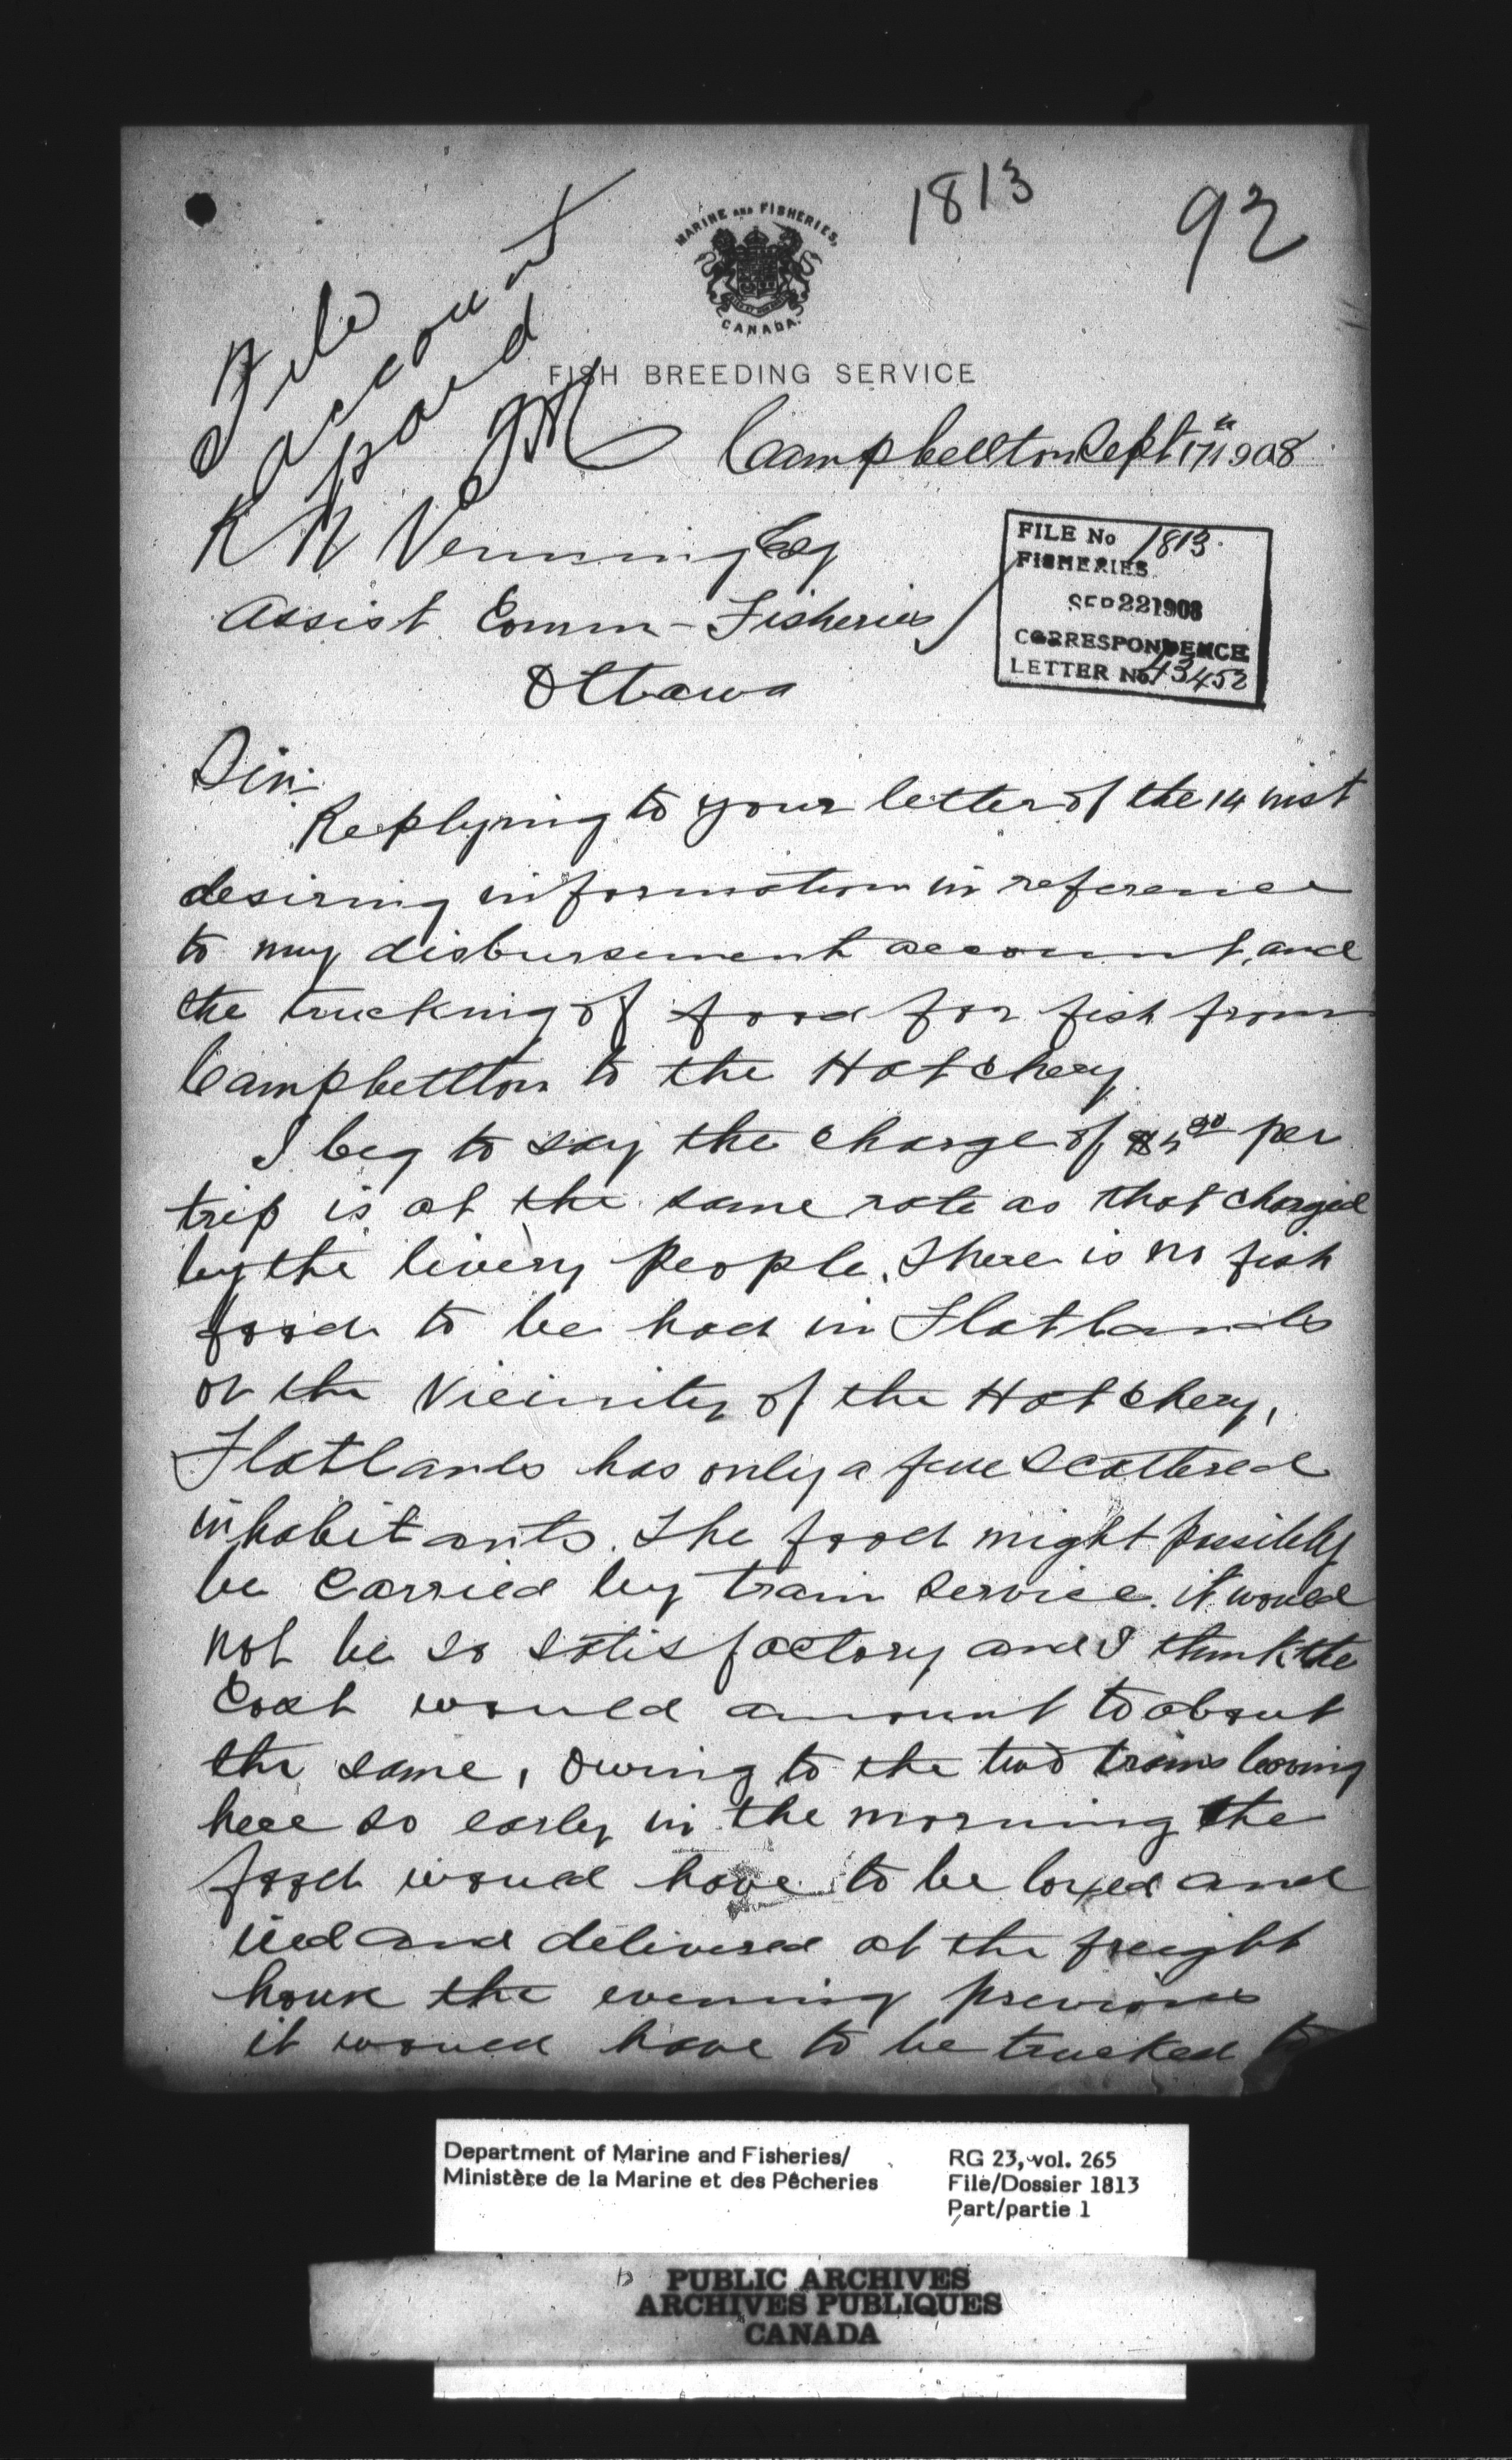 1813
92
MARINE AND FISHERIES,
CANADA.
FISH BREEDING SERVICE
File
account
paid
Campbellton Sept 17th 1908
R N Venning Esq
Assist. Comm - Fisheries
Ottawa
FILE No 1813.
FISHERIES
SEP 22 1908
CORRESPONDENCE
LETTER No. 43452
Sir:
Replying to your letter of the 14 inst
desiring information in reference
to my disbursement account, and
the trucking of food for fish from
Campbellton to the Hatchery
I beg to say the charge of per
trip is at the same rate as that charged
by the livery people. There is no fish
food to be had in Flatlands
or the Vicinity of the Hatchery,
Flatlands has only a few scattered
inhabitants. The food might possibly
be carried by train service. it would
not be so satisfactory and I think the
Cost would amount to about
the same, owing to the two trains leaving
here so early in the morning the
food would have to be boxed and
iced and delivered at the freight
house the evening previous
it would have to be trucked to
Department of Marine and Fisheries/
Ministère de la Marine et des Pêcheries
RG 23, vol. 265
File/Dossier 1813
Part/partie 1
PUBLIC ARCHIVES
ARCHIVES PUBLIQUES
CANADA